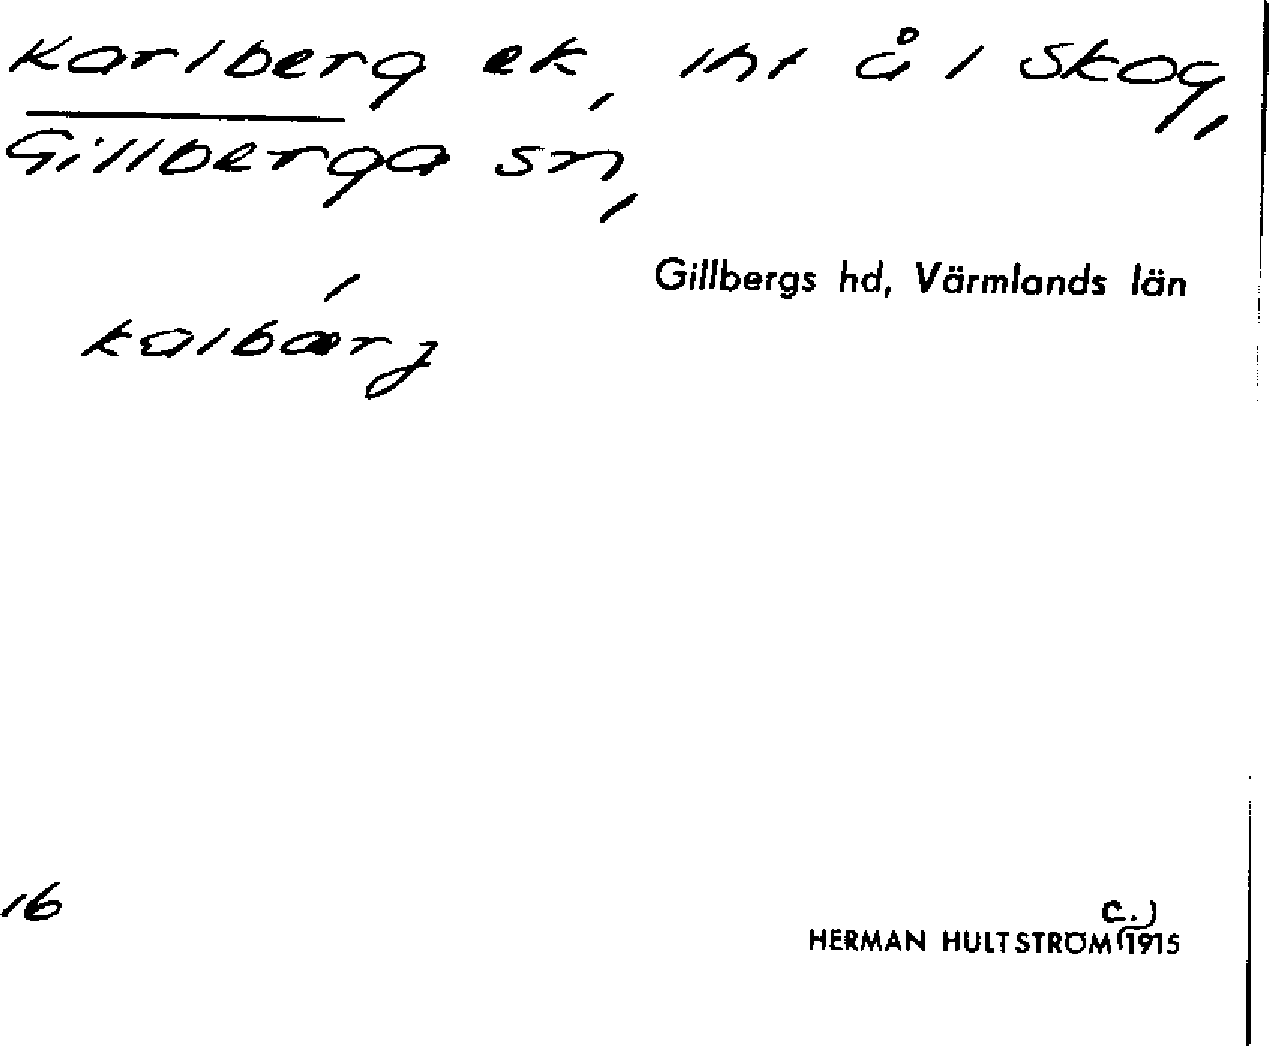 Karlberg ek, iht å i Skog,
Gillberga sn,
Gillbergs hd, Värmlands län
kálbærj
16
c.)
HERMAN HULTSTRÖM (1915